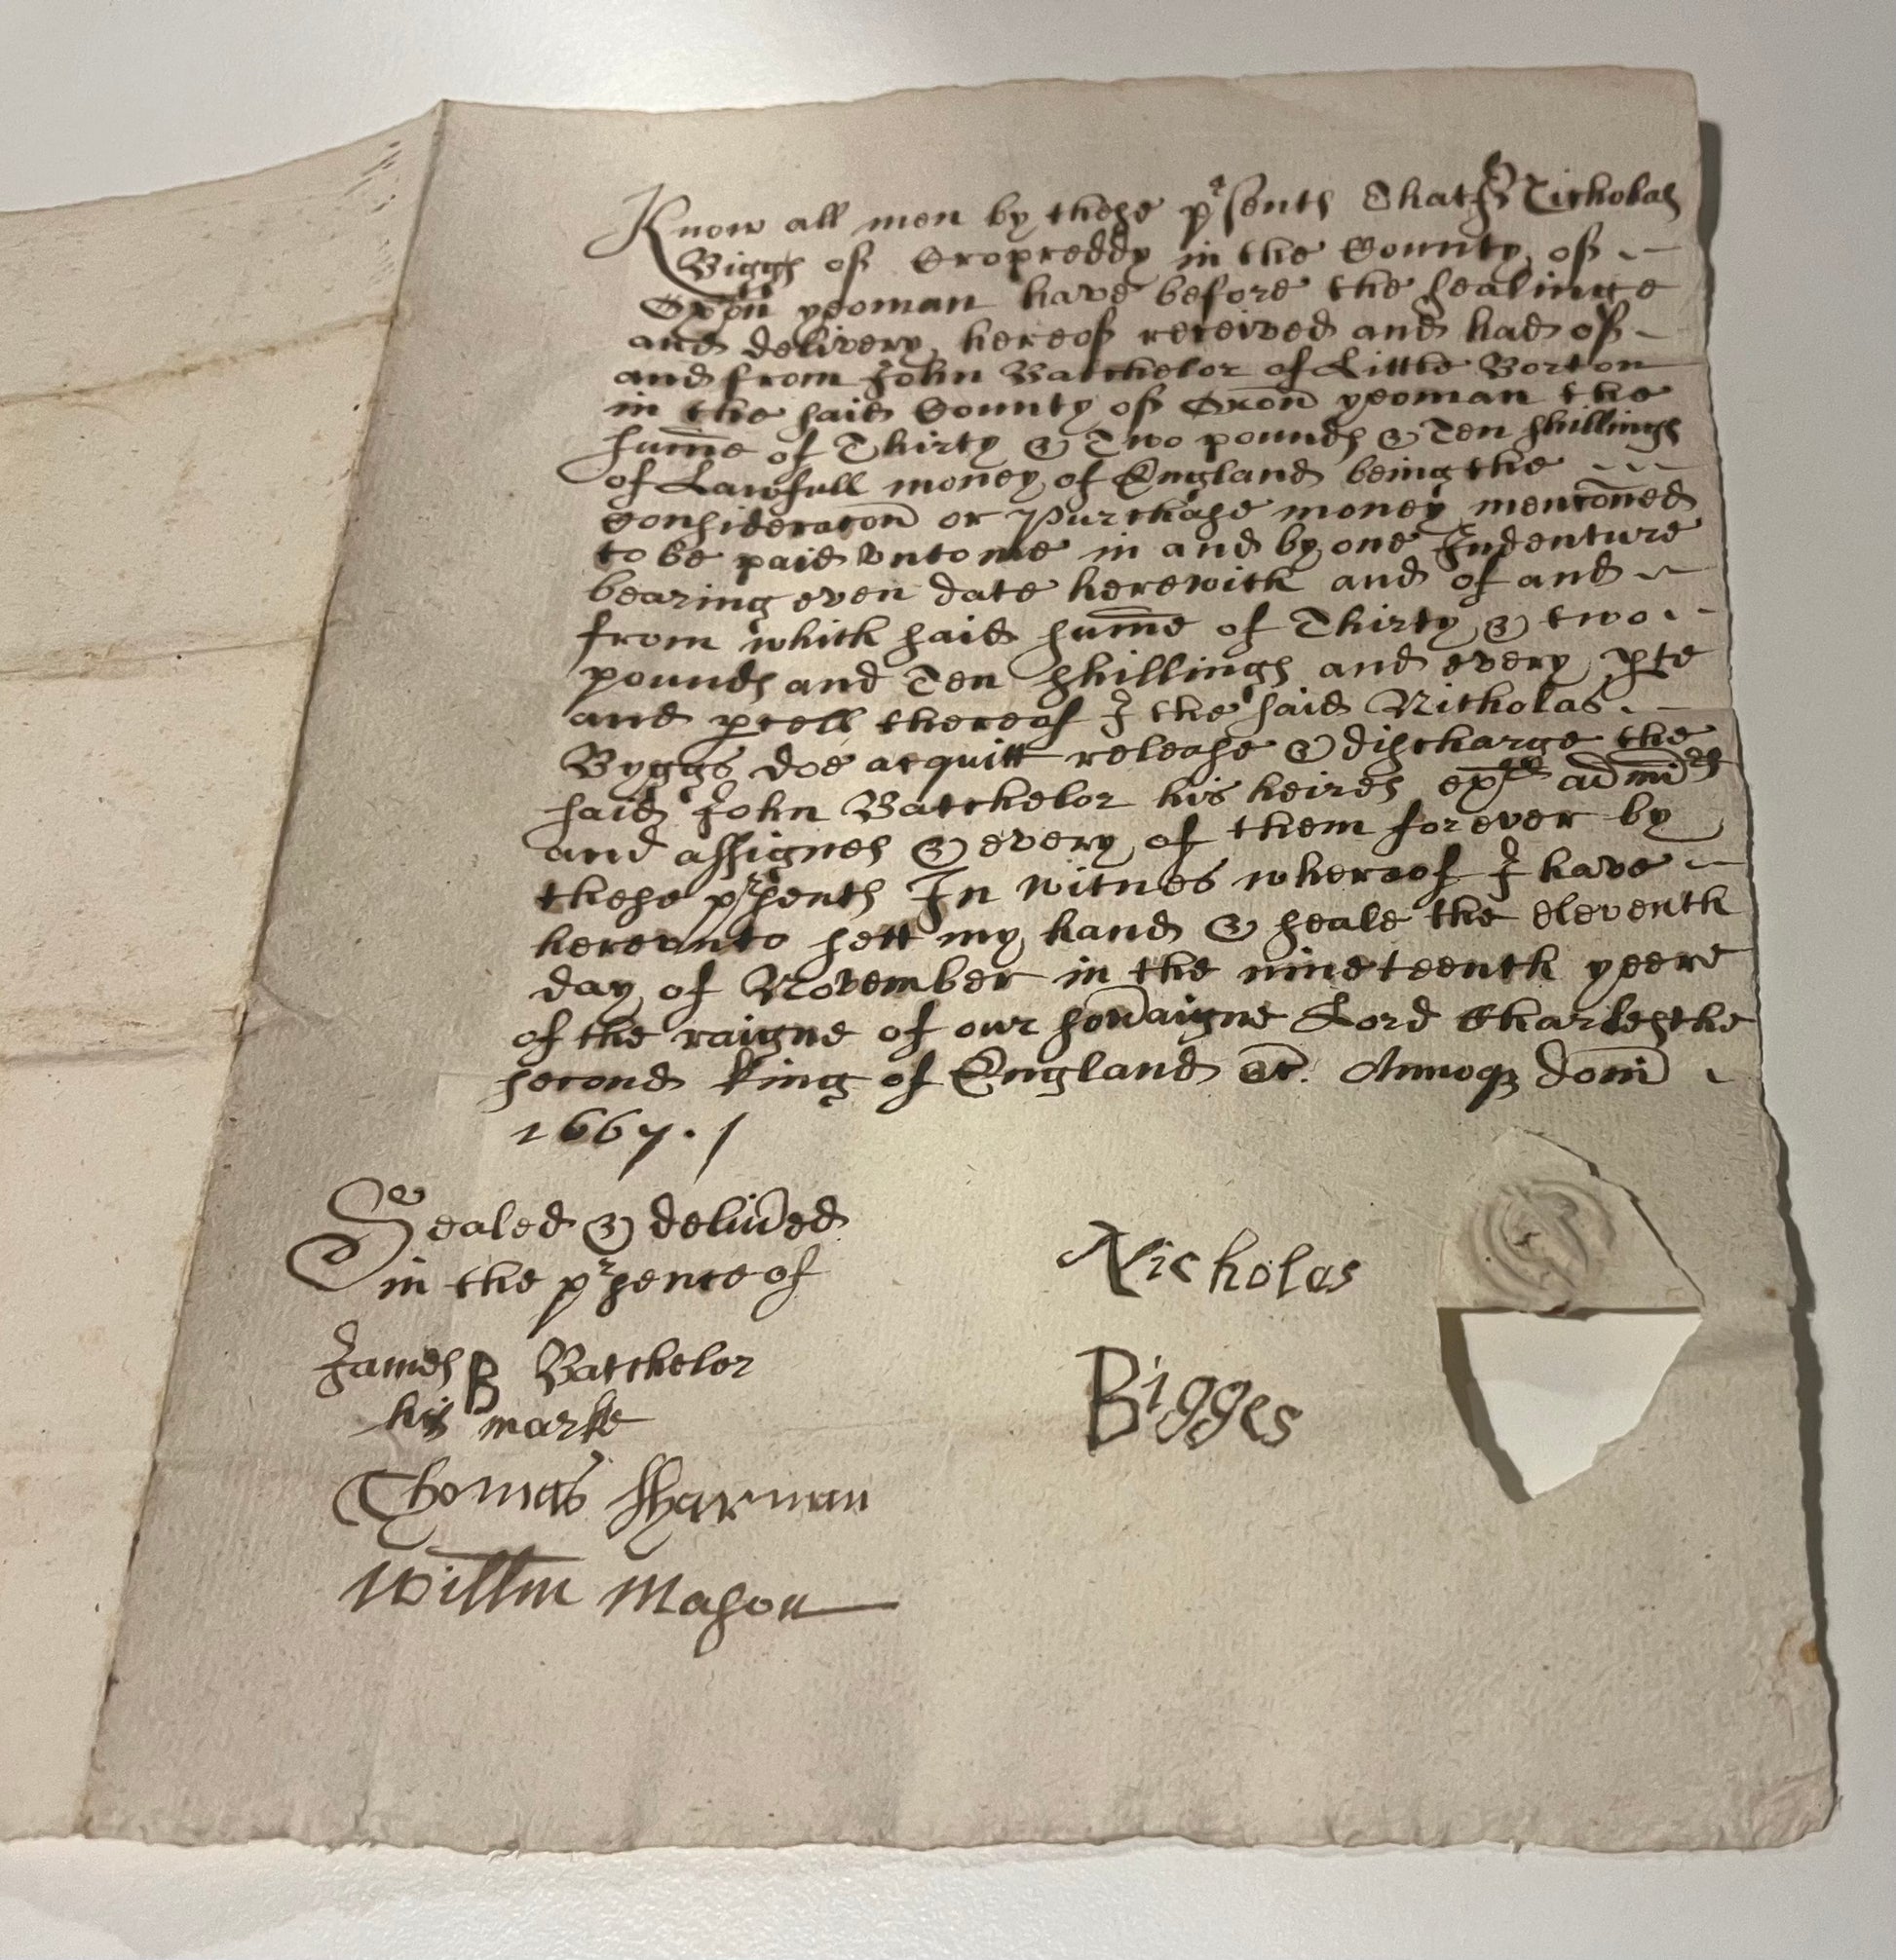 Know all men by these p^rsents That I Nicholas
Biggs of Cropreddy in the County of
Oxōn yeoman have before the sealinge
and delivery hereof received and had of
and from John Batchelor of Little Borton
in the said County of Oxōn yeoman the
sum̄e of Thirty & Two pounds & Ten shillings
of Lawfull money of England being the
Consideracōn or Purchase money mencōned
to be paid vnto me in and by one Indenture
bearing even date herewith and of and
from which said sum̄e of Thirty & two
pounds and Ten shillings and every ꝑte
and ꝑcell thereof I the said Nicholas
Byggs doe acquitt release & discharge the
said John Batchelor his heires ex^rs adm̄i^rs
and assignes & every of them forever by
these p^rsents In witnes whereof I have
hereunto sett my hand & seale the eleventh
day of November in the nineteenth yeere
of the raigne of our sov̄aigne Lord Charles the
second King of England &c. Annoqꝫ Dom̄i
1667./
Sealed & deliv̄ed
in the p^rsence of
James B Batchelor
his marke
Thomas Sharman
Willm̄ Mason
Nicholas
Bigges